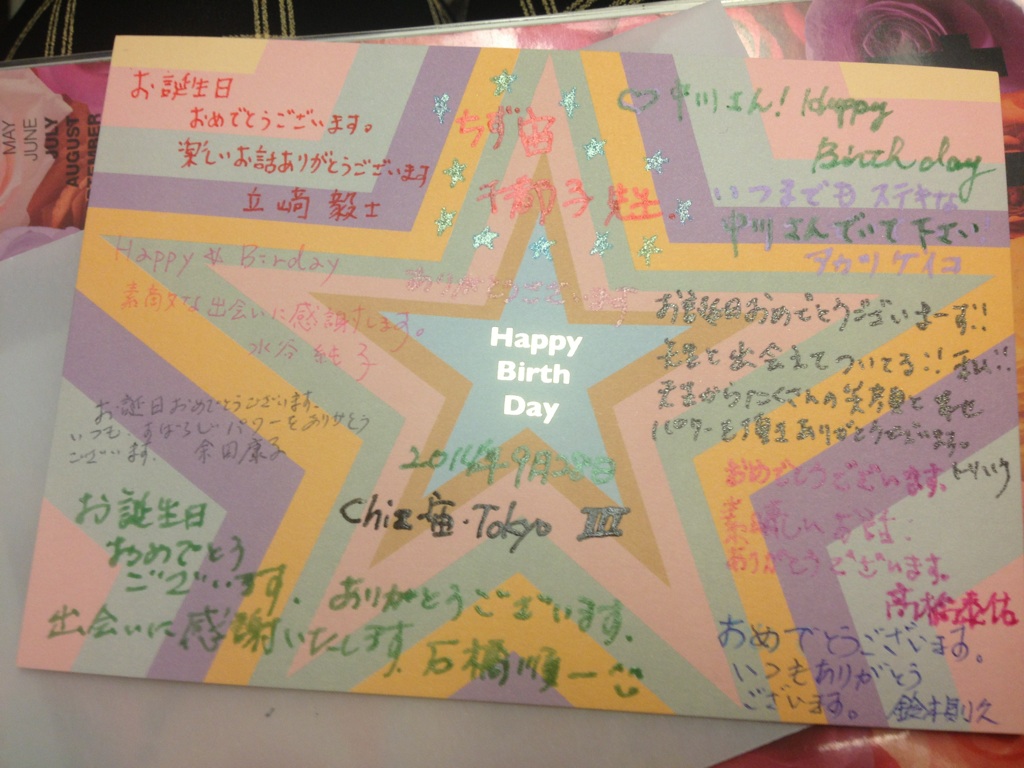 MAY
JUNE
JULY
AUGUST
お誕生日
おめでとうございます。
楽しいお話ありがとうございます
立崎 毅士
ちず宙
千都子先生
♡中川さん! Happy
Birthday
いつまでも ステキな
中川さんでいて下さい
Happy Birday
素敵な出会いに感謝します。
水谷 純子
ありがとうございます
お誕生日おめでとうございまーす!!
先生と出会えてついてる!!
おめでとうございます。
いつも、すばらしいパワーをありがとう
ございます。
Happy
Birth
Day
2014年9月28日
Chiz・宙・Tokyo III
お誕生日
おめでとう
ございます。ありがとうございます。
出会いに感謝いたします。石橋順一
おめでとうございます。
素晴しいお話
ありがとうございます。
高橋泰佑
おめでとうございます。
いつもありがとう
ございます。 鈴木則久